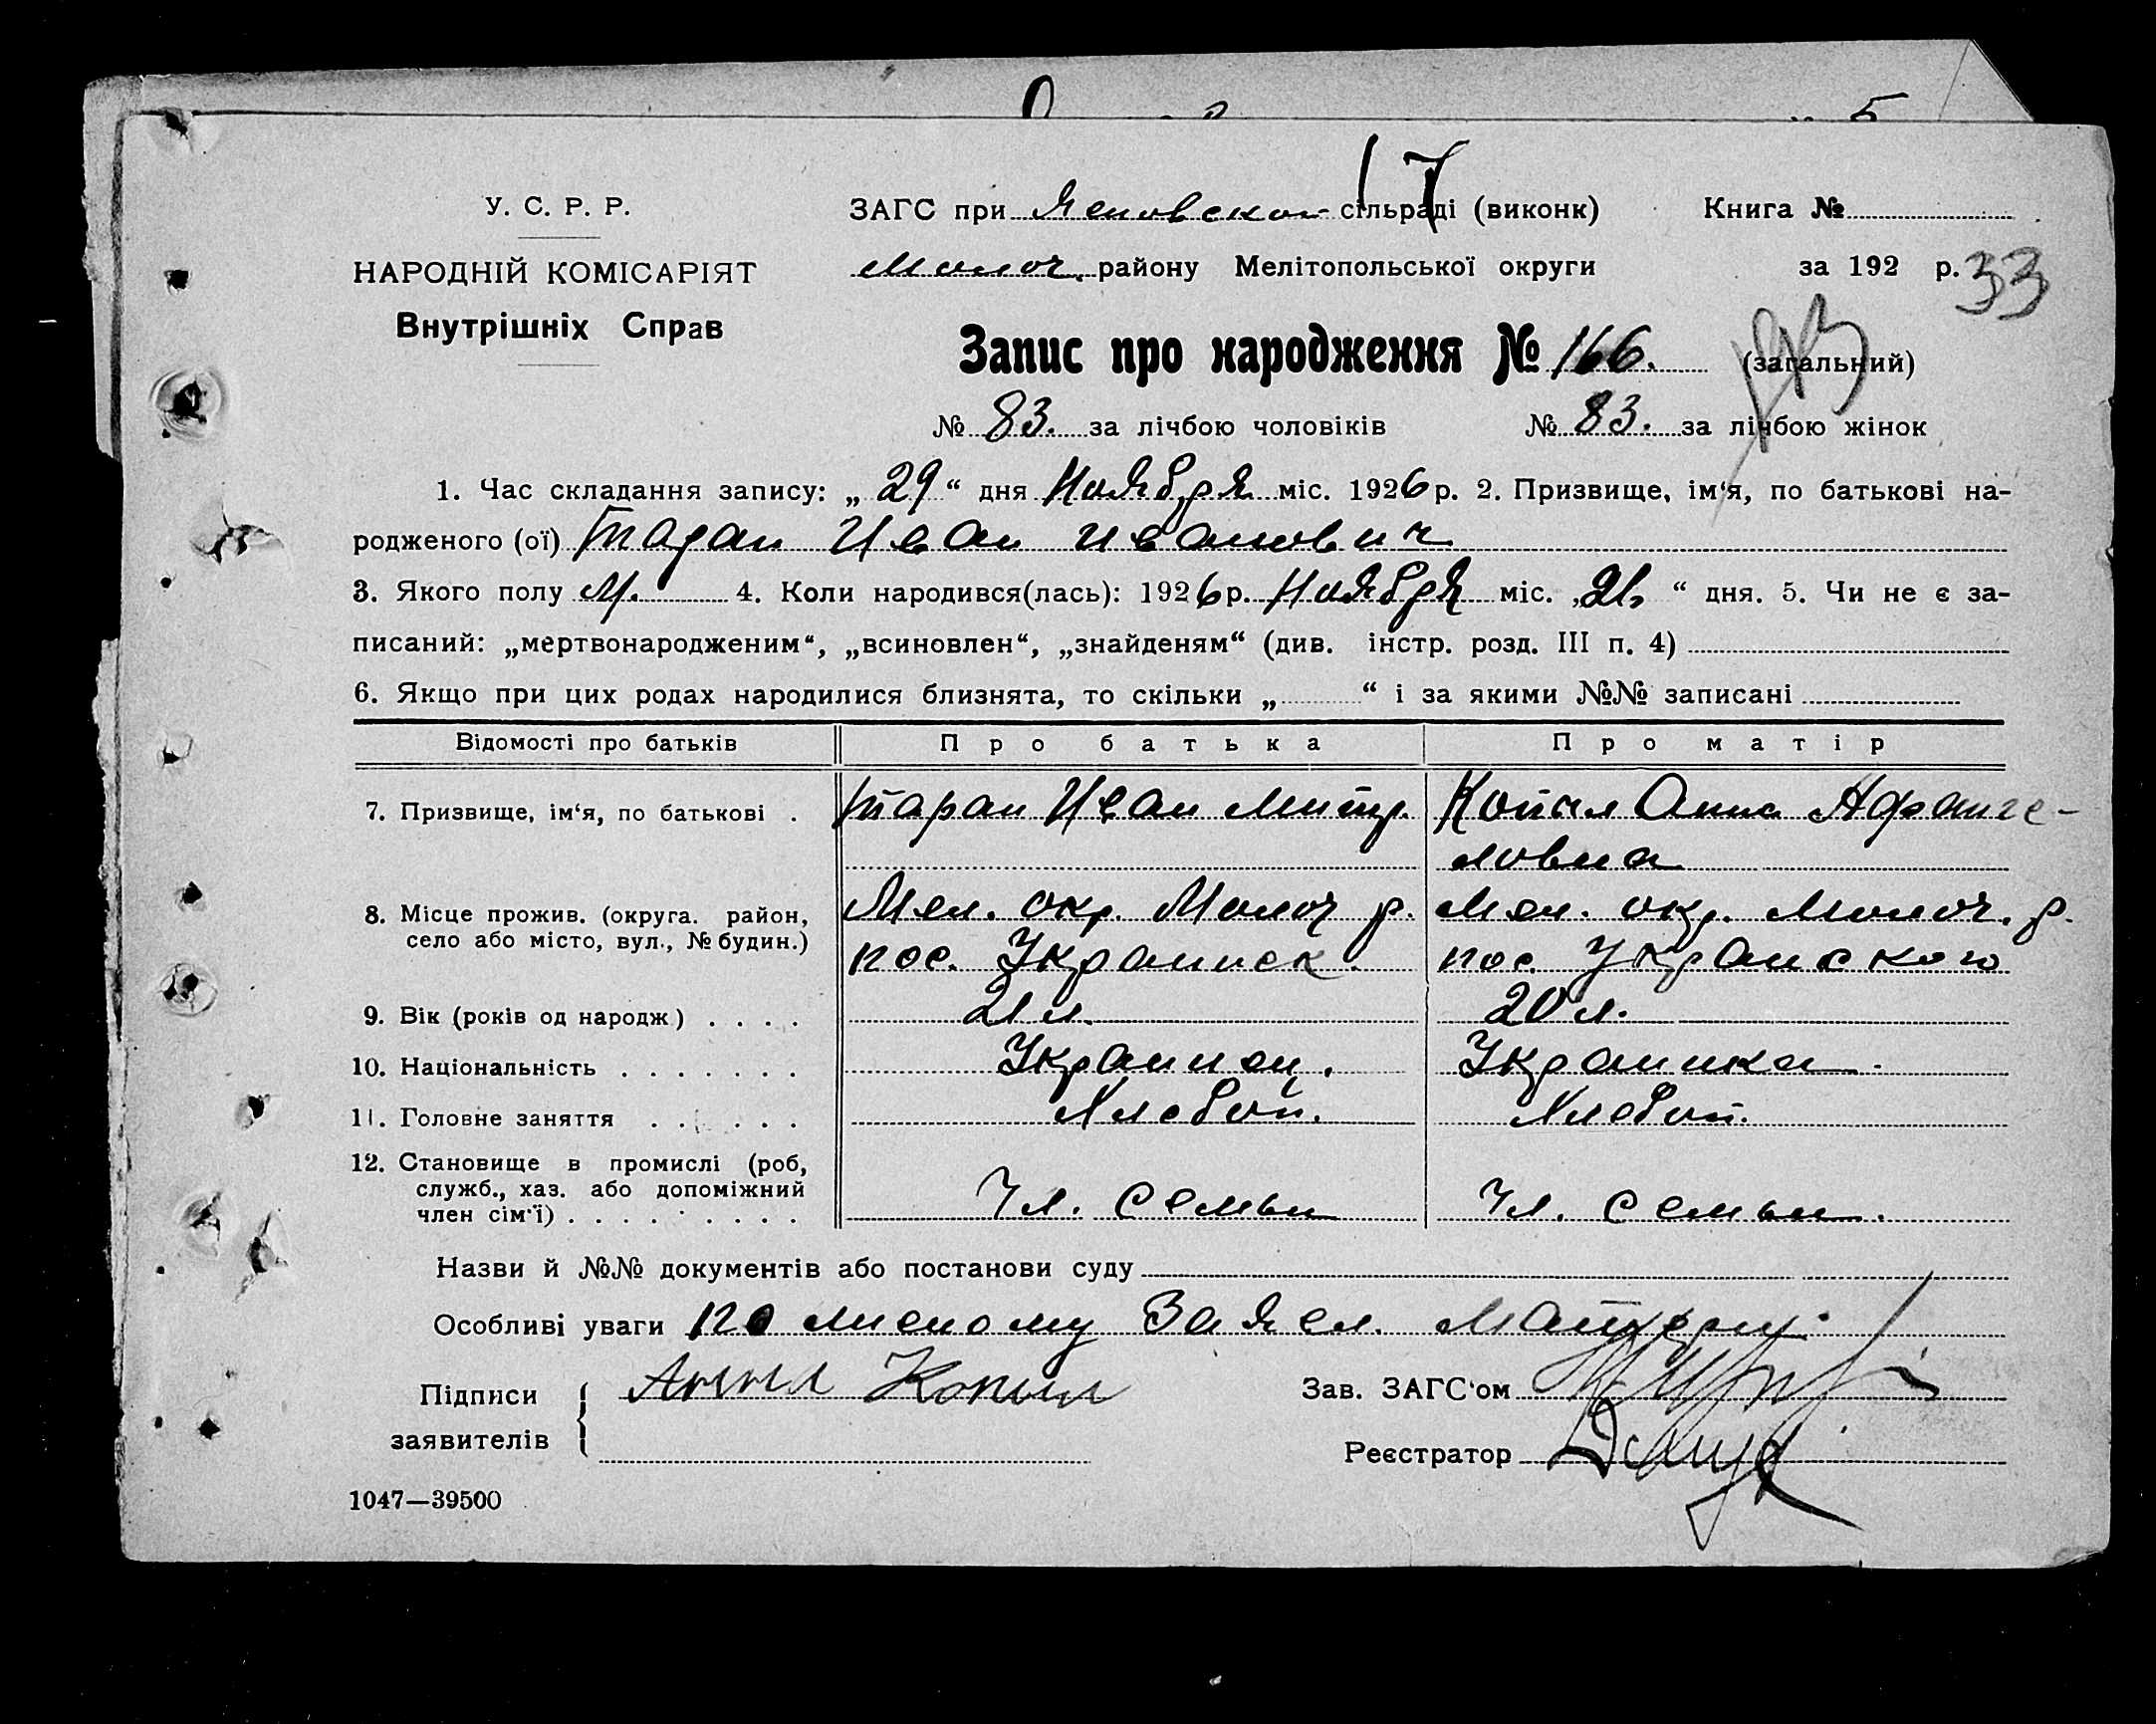 17
У. С. Р. Р.
ЗАГС при сільраді (виконк)
Книга №
НАРОДНІЙ КОМІСАРІЯТ
Молоч. району Мелітопольської округи
за 192 р.
33
Внутрішніх Справ
Запис про народження № 166. (загальний)
№ 83. за лічбою чоловіків № 83. за лічбою жінок
1. Час складання запису: „ 29 “ дня Ноября міс. 1926 р. 2. Призвище, ім‘я, по батькові на-
родженого (ої) Таран Иван Иванович
3. Якого полу М. 4. Коли народився(лась): 1926 р. Ноября міс. „21“ дня. 5. Чи не є за-
писаний: „мертвонародженим“, „всиновлен“, „знайденям“ (див. інстр. розд. III п. 4)
6. Якщо при цих родах народилися близнята, то скільки „ “ і за якими №№ записані
Відомості про батьків
Про батька
Про матір
7. Призвище, ім‘я, по батькові .
Таран Иван Митр.
Копыл Анна
ловна
8. Місце прожив. (округа. район,
село або місто, вул., № будин.)
Мел. окр. Молоч р.
пос. Украинск.
Мел. окр. Молоч. р.
пос. Украиского
9. Вік (років од народж) . . . .
21 л.
20 л.
10. Національність . . . . . . .
Украинец.
Украинка.
11. Головне заняття . . . . . .
Хлебоп.
Хлебоп.
12. Становище в промислі (роб,
служб., хаз. або допоміжний
член сім‘ї) . . . . . . . . .
Чл. семьи
Чл. семьи.
Назви й №№ документів або постанови суду
Особливі уваги по Заявл. матери
Підписи
заявителів
Анна Копил
Зав. ЗАГС‘ом
Реєстратор
1047—39500